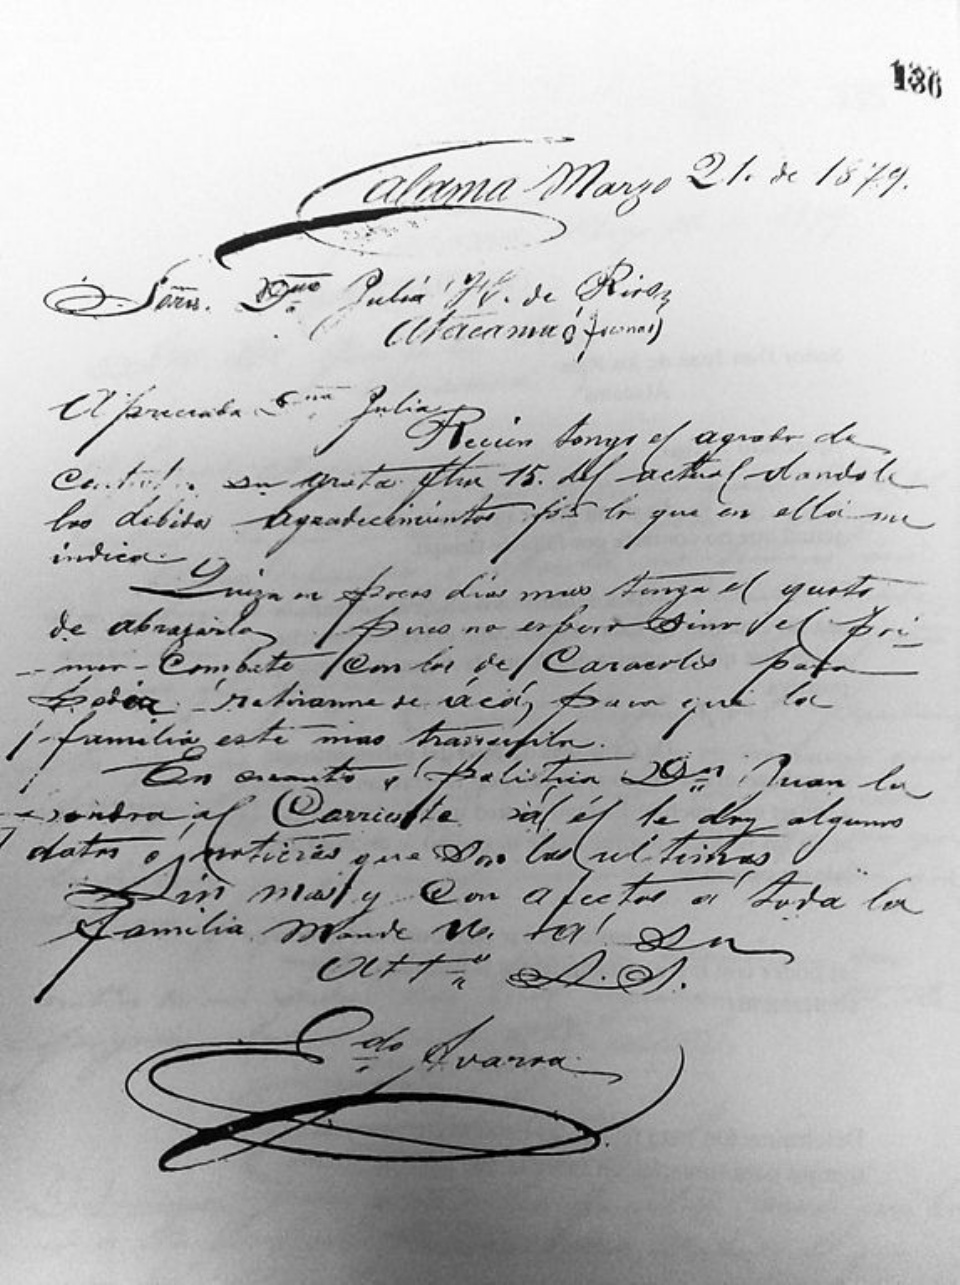 136
Calama Marzo 21. de 1879.
Señra. Dña Julia V. de Rios
Atacama
Apreciada Sña Julia
Recien tengo el agrado de
su grata fha 15. del actual dandole
los debidos agradecimientos por lo que en ella me
indica.
Quiza en pocos dias mas tenga el gusto
de abrazarla, pues no espero sino el pri-
-mer Combate Con los de Caracoles para
poder retirarme de acá, para que la
familia esté mas tranquila.
En cuanto á Dn Juan la
al Corriente á él le doy algunos
datos ó noticias que son las ultimas
Sin mas y Con afectos á toda la
familia Mande U. á su
Atto S. S.
Edo Avaroa